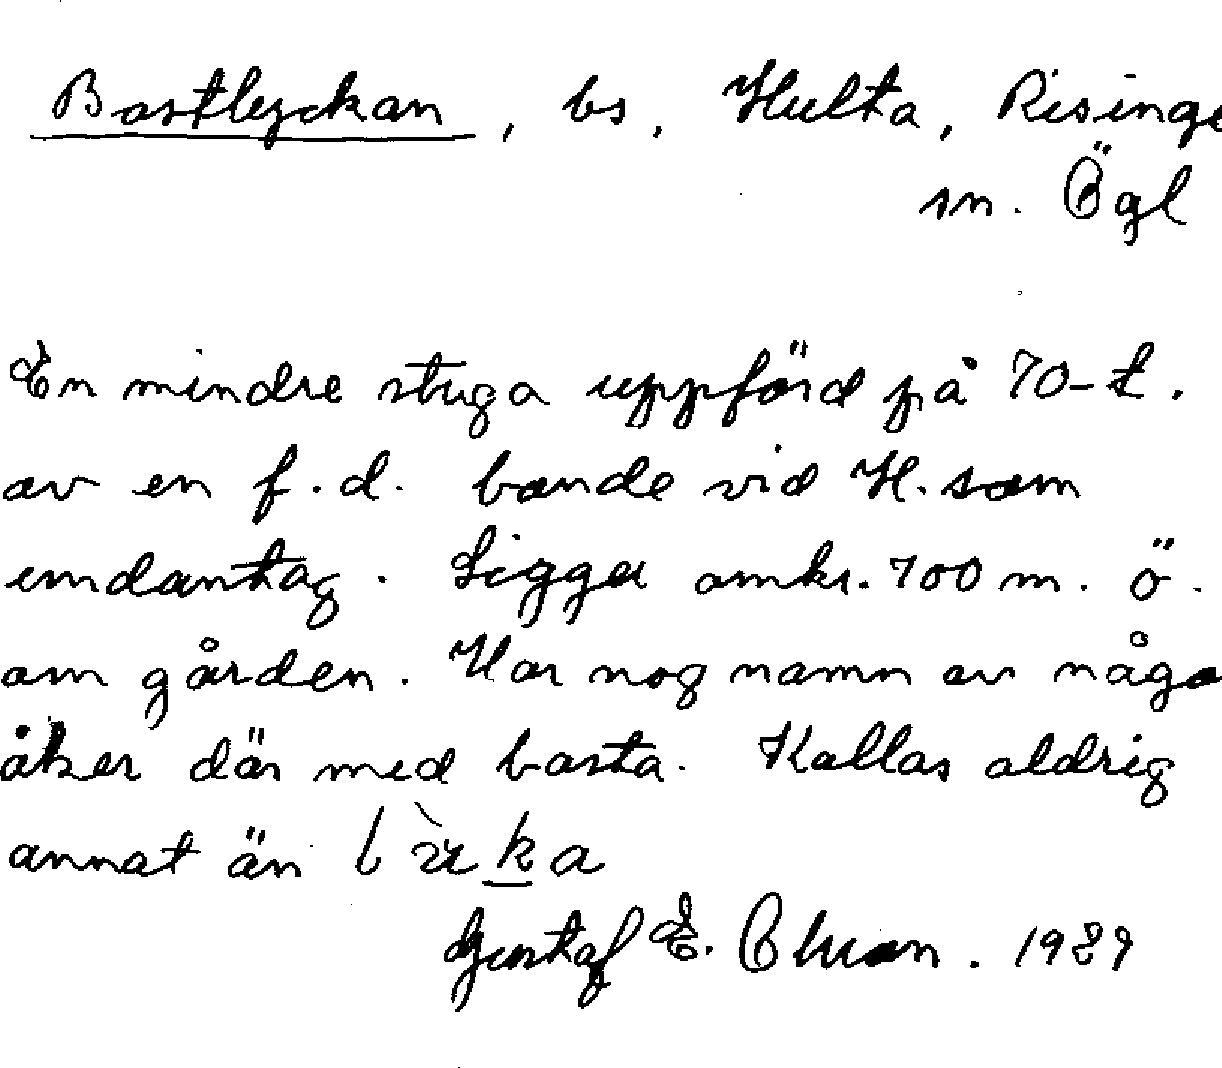 Bastlyckan, bs, Hulta, Risinge
sn. Ögl
En mindre stuga uppförd på 70-t.
av en f.d. bonde vid H. som
undantag. Ligger omkr. 700 m. ö.
om gården. Har nog namn av någo
åker där med basta. Kallas aldrig
annat än l ka
Gustaf E. 1929